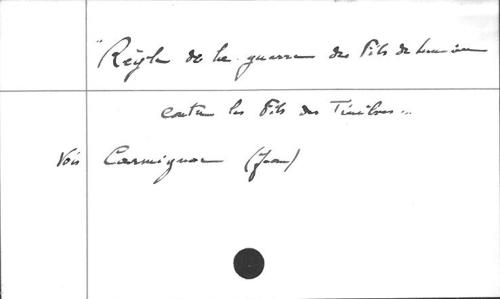 "Règle de la guerre des Fils de lumière
contre les Fils des Ténèbres...
Voir Carmignac (Jean)